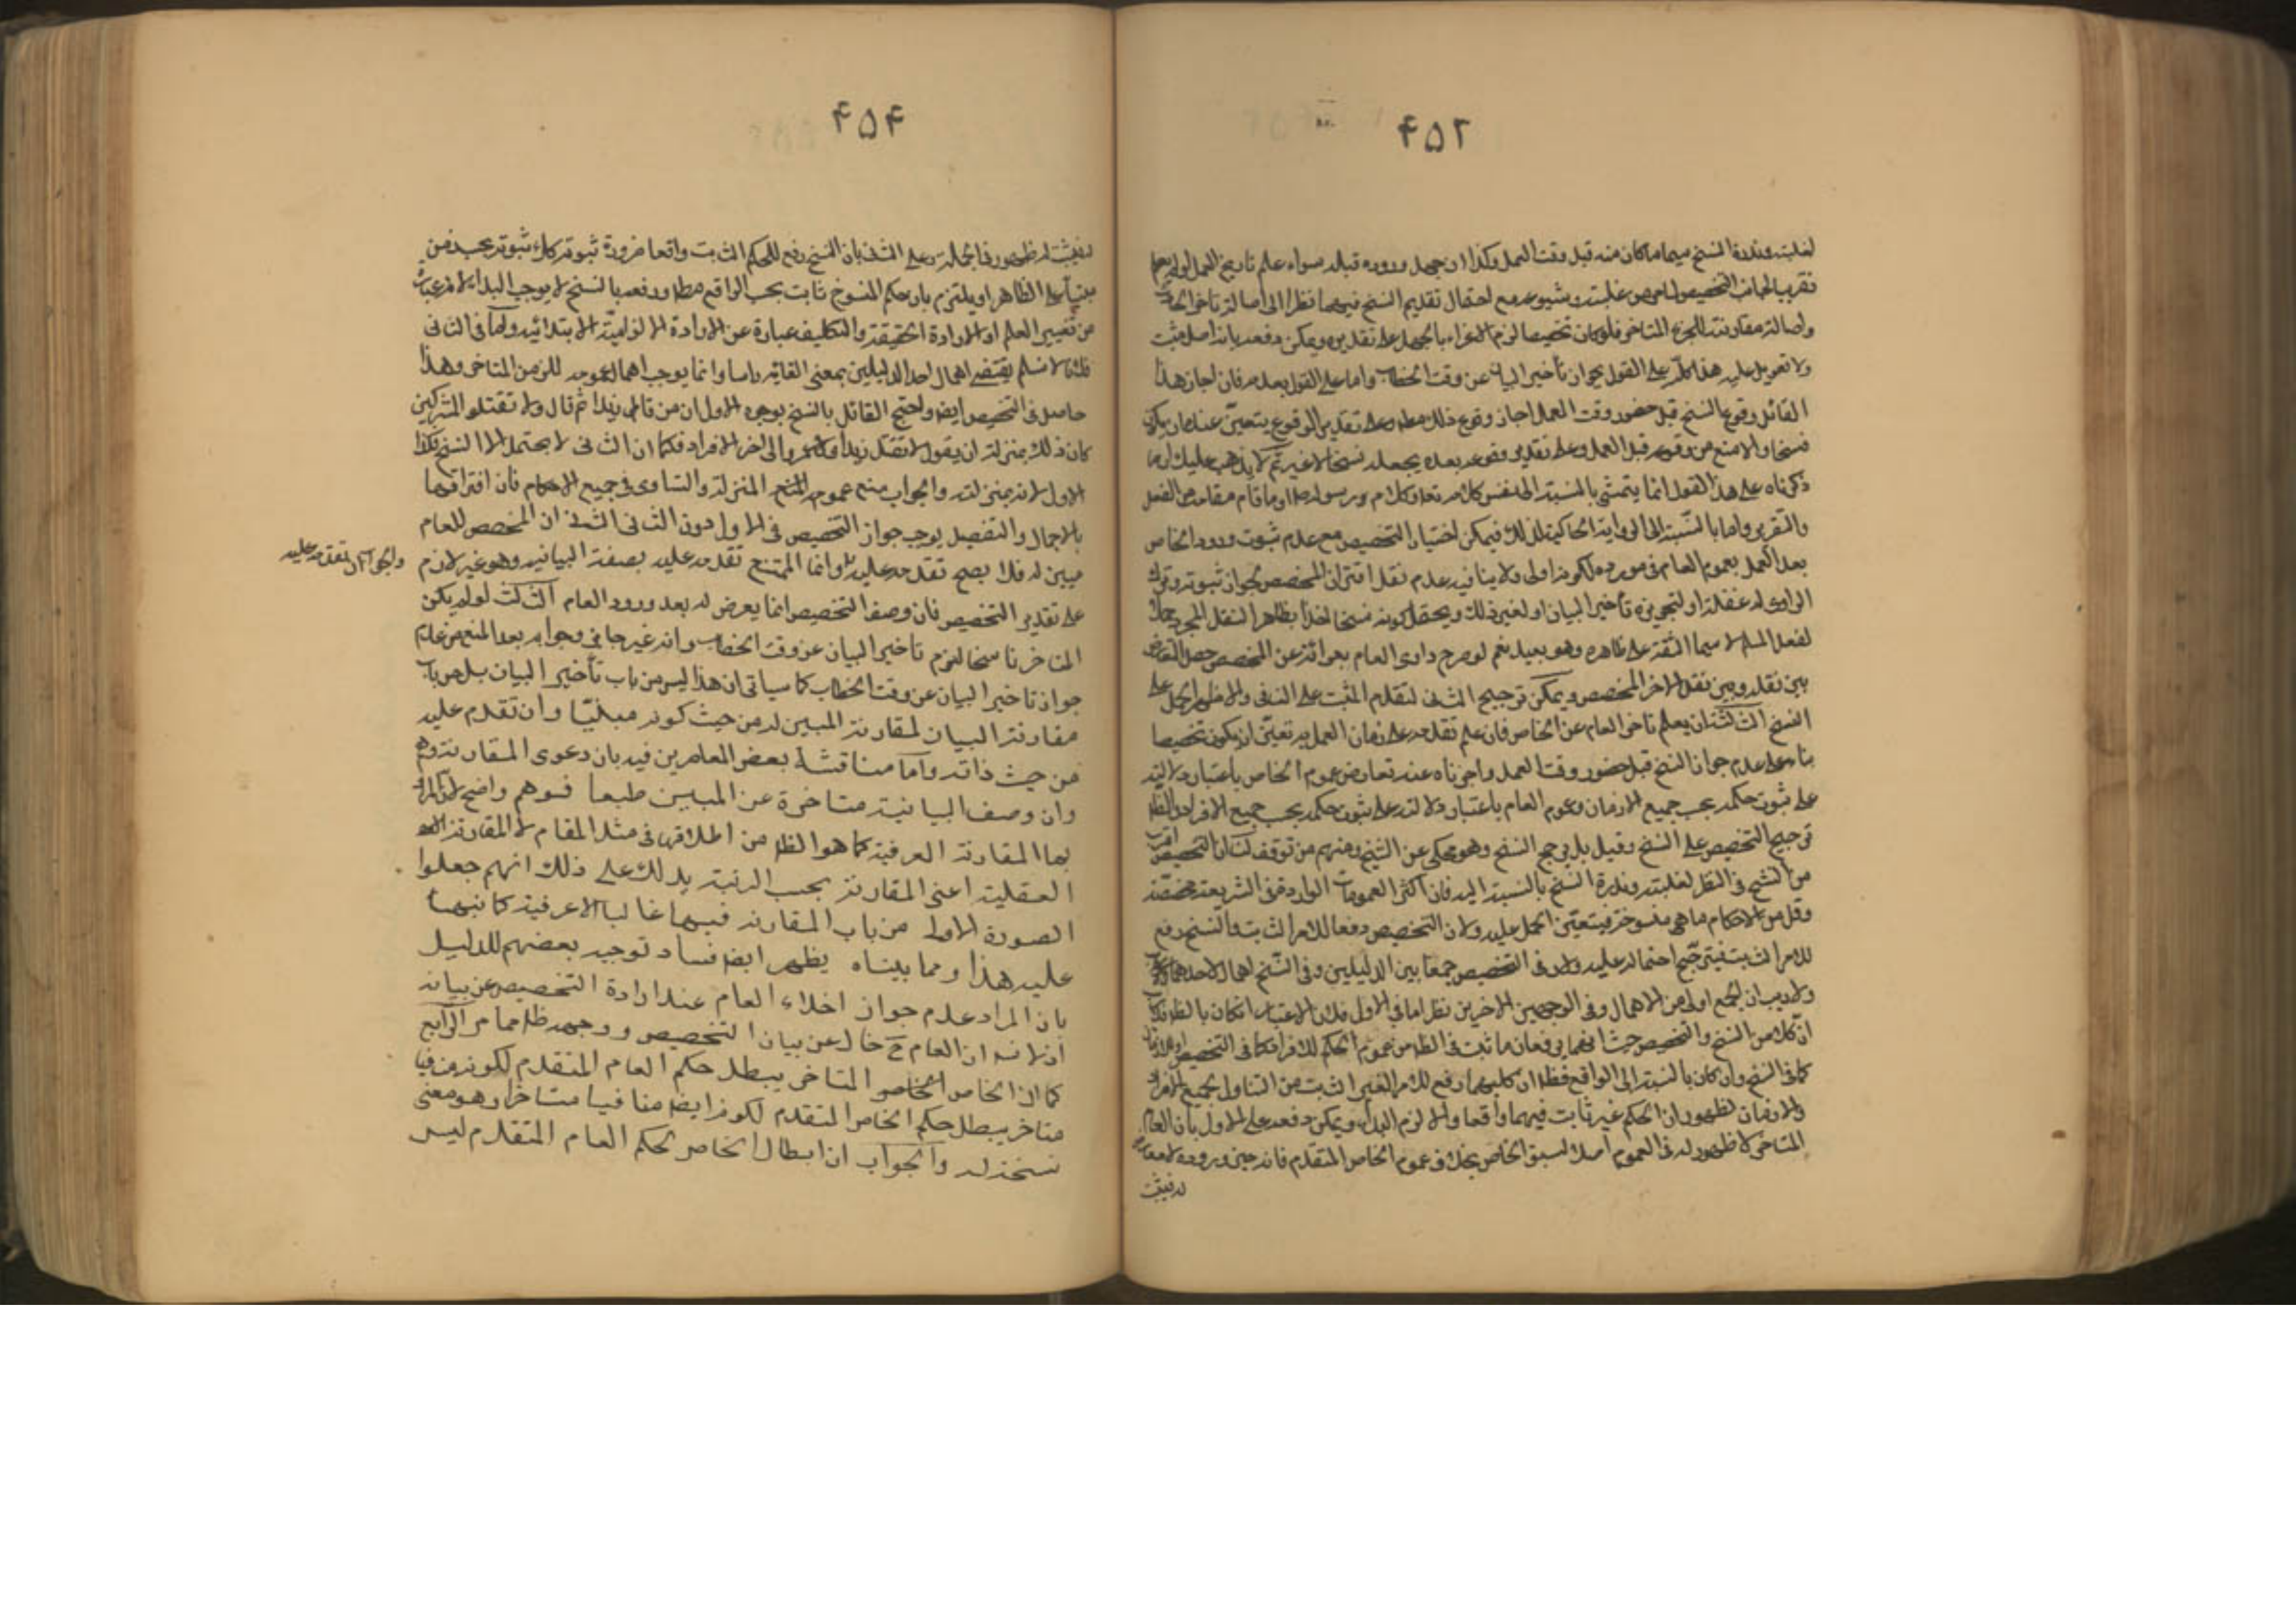 ۴۵۲
لغلبته وندرة النسخ سيما ما كان منه قبل وقت العمل وكذا ان جهل وروده قبله سواء علم تاريخ العمل او لم يعلم
تقريب لجانب التخصيص لما مر من غلبته وشيوعه مع احتمال تقديم النسخ فيهما نظرا الى اصالة تاخر الحادث
واصالة مقارنته للجزء المتاخر فلو كان تخصيصا لزم الاغراء بالجهل على تقديره ويمكن دفعه بانه اصل مثبت
ولا تعويل عليه هذا كله على القول بجواز تأخير البيان عن وقت الخطاب واما على القول بعدمه فان اجاز هذا
القائل وقوع النسخ قبل حضور وقت العمل اجاز وقوع ذلك مطلقا وعلى تقدير الوقوع يتعين عنده ان يكون
نسخا والا منع من وقوعه قبل العمل وعلى تقدير وقوعه بعده يجعله نسخا لا غير ثم لا يذهب عليك ان ما
ذكرناه على هذا القول انما يتمشى بالنسبة الى نفس كلامه تعالى وكلام رسوله او ما قام مقامه من الفعل
والتقرير واما بالنسبة الى الرواية الحاكية لذلك فيمكن اختيار التخصيص مع عدم ثبوت ورود الخاص
بعد العمل بعموم العام فى مورده لكونه اولى ولا ينافيه عدم نقل اقتران المخصص لجواز ثبوته وترك
الراوى له غفلة او لتجويزه تأخير البيان او لغير ذلك ويحتمل كونه نسخا اخذا بظاهر النقل المجرد حملا
لفعل المسلم لا سيما الثقة على ظاهره وهو بعيد نعم لو صرح راوى العام بعرائه عن المخصص حصل التعارض
بين نقله وبين نقل الاخر المخصص ويمكن ترجيح الثانى لتقديم المثبت على النافى والاظهر الحمل على
النسخ الثالث ان يعلم تاخر العام عن الخاص فان علم تقدمه على زمان العمل به تعين ان يكون تخصيصا
بناء على عدم جواز النسخ قبل حضور وقت العمل واجزناه عنه تعارض عموم الخاص باعتبار دلالته
على ثبوت حكمه بحسب جميع الازمان وعموم العام باعتبار دلالته على ثبوت حكمه بحسب جميع الافراد والظاهر
ترجيح التخصيص على النسخ وقيل بل يرجح النسخ وهو محكى عن الشيخ ومنهم من توقف لنا ان التخصيص اقرب
من النسخ فى النظر لغلبته وندرة النسخ بالنسبة اليه فان اكثر العمومات الواردة فى الشريعة مخصصة
وقل من الاحكام ما هى منسوخة فيتعين الحمل عليه ولان التخصيص دفعا للامر الثابت والنسخ رفع
للامر الثابت فيترجح احتماله عليه ولان فى التخصيص جمعا بين الدليلين وفى النسخ اهمال لاحدهما
ولا ريب ان الجمع اولى من الاهمال وفى الوجهين الاخرين نظر اما فى الاول فلان الاعتبار ان كان بالظاهر فكما
ان كلا من النسخ والتخصيص حيث انهما يرفعان ما ثبت فى الظاهر من عموم الحكم للافراد كما فى التخصيص او للازمان
كما فى النسخ وان كان بالنسبة الى الواقع فظاهر ان كليهما دفع للامر الغير الثابت من التناول لجميع الافراد
والازمان لظهور ان الحكم غير ثابت فيهما واقعا والا لزم البداء ويمكن دفعه على الاول بان العام
المتاخر لا ظهور له فى العموم اصلا لسبق الخاص بخلاف عموم الخاص المتقدم فانه حين وروده لا معارض
له فيثبت
۴۵۴
له فيثبت له ظهور فى الجملة وعلى الثانى بان النسخ رفع للحكم الثابت واقعا ضرورة ثبوته كل ثبوته بحسب زمن
مبنيا على الظاهر او يلتزم بان حكم المنسوخ ثابت بحسب الواقع مطلقا ورفعه بالنسخ لا يوجب البداء لانه عبارة
من تغيير العلم او الارادة الحقيقية والتكليف عبارة عن الارادة الالزامية الابتدائية واما فى الثانى
فلانا لا نسلم يقتضى اهمال احد الدليلين بمعنى القائه راسا وانما يوجب اهمال عمومه للزمن المتاخر وهذا
حاصل فى التخصيص ايضا واحتج القائل بالنسخ بوجوه الاول ان من قال اقتل زيدا ثم قال ولا تقتلوا المشركين
كان ذلك بمنزلة ان يقول لا تقتل زيدا ولا عمروا الى اخر الافراد فكما ان الثانى لا يحتمل الا النسخ فكذا
الاول لانه بمنزلته والجواب منع عموم المنزلة والتساوى فى جميع الاحكام فان افتراقهما
بالاجمال والتفصيل يوجب جواز التخصيص فى الاول دون الثانى الثانى ان المخصص للعام
مبين له فلا يصح تقدمه عليه وانما الممتنع تقدمه عليه بصفة البيانية وهو غير لازم
والجواب ان تقدمه عليه
على تقدير التخصيص فان وصف التخصيص انما يعرض له بعد ورود العام الثالث لو لم يكن
المتاخر ناسخا لزم تاخير البيان عن وقت الخطاب وانه غير جائز وجوابه بعد المنع من عدم
جواز تاخير البيان عن وقت الخطاب كما سياتى ان هذا ليس من باب تأخير البيان بل من باب
مقارنة البيان لمقارنة المبين له من حيث كونه مبينا وان تقدم عليه
من حيث ذاته واما مناقشة بعض المعاصرين فيه بان دعوى المقارنة وهم
وان وصف البيانية متاخرة عن المبين طبعا فوهم واضح لان المراد
بها المقارنة العرفية كما هو الظاهر من اطلاقها فى مثل المقام لا المقارنة
العقلية اعنى المقارنة بحسب الرتبة يدلك على ذلك انهم جعلوا
الصورة الاولى من باب المقارنة فيهما غالبا الا عرفية كما نبهنا
عليه هذا ومما بيناه يظهر ايضا فساد توجيه بعضهم للدليل
بان المراد عدم جواز اخلاء العام عند ارادة التخصيص عن بيانه
اذ لا شبه ان العام ح خال عن بيان التخصيص ووجهه ظاهر مما مر الرابع
كما ان الخاص المتاخر يبطل حكم العام المتقدم لكونه منافيا
متاخر يبطل حكم الخاص المتقدم لكونه ايضا منافيا متاخرا وهو معنى
نسخه له والجواب ان ابطال الخاص لحكم العام المتقدم ليس